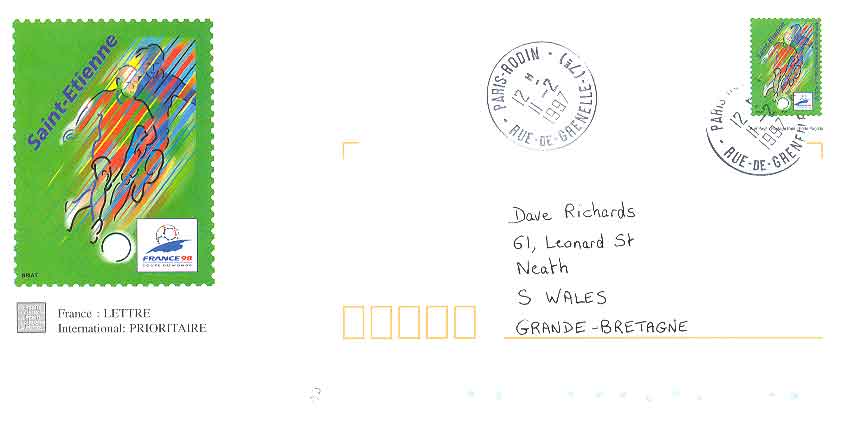 Saint-Etienne
FRANCE 98
COUPE DU MONDE
BRIAT
France : LETTRE
International: PRIORITAIRE
PARIS-RODIN - (7E)
12 H
11 -2
1997
- RUE-DE-GRENELLE -
Saint-Etienne
PARIS
12
-2
1997
- RUE-DE-GRENE
Dave Richards
61, Leonard St
Neath
S WALES
GRANDE-BRETAGNE